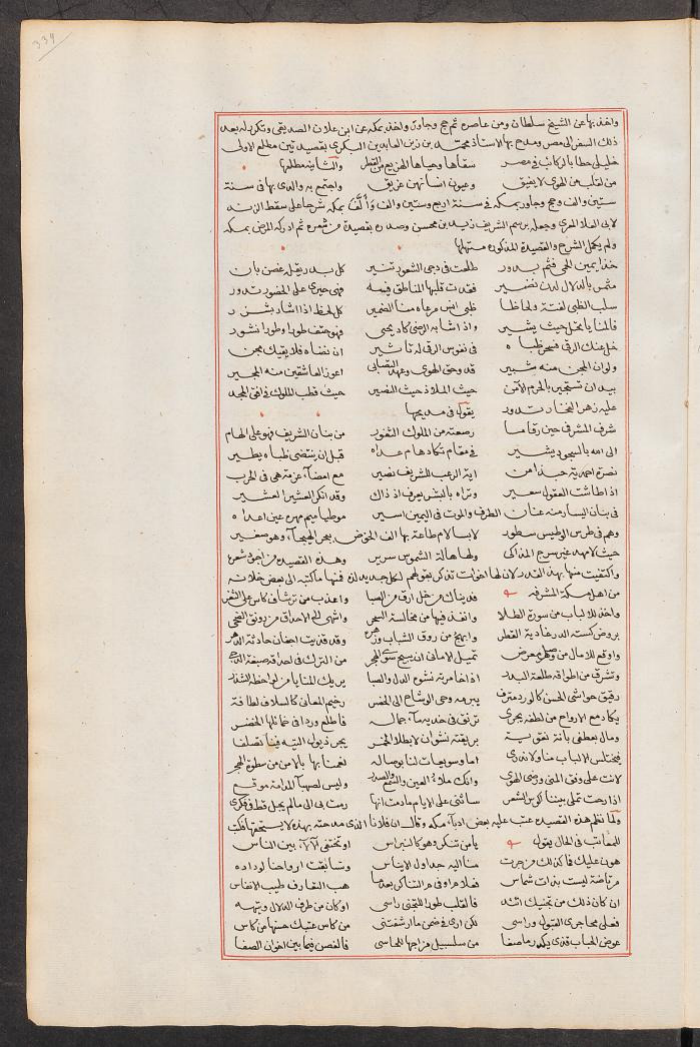 339
واخذ بها عن الشيخ سلطان ومن عاصره ثم حج وجاور واخذ بمكه عن ابن علان الصديقي وتكرر له بعد
ذلك السفر الى مصر ومدح بها الاستاذ محمد بن زين العابدين البكري بقصيدتين مطلع الاولى
خليلي حطا بالركائب في مصر سقاها وحياها الهزيع من القطر والثانية مطلعها
من لقلب من الهوى لا يفيق وعيون انسانهن غريق واجتمع به والدي بها في سنة
ستين والف وحج وجاور بمكه في سنة اربع وستين والف وألّف بمكه شرحا على سقط الزند
لابي العلا المعري وجعله برسم الشريف زيد بن محسن وصدره بقصيدة من شعره ثم ادركه المرض بمكه
ولم يكمل الشرح والقصيدة المذكوره مستهلها
خذ ايمين الحي فثم بدور طلعت في دجى الشعور تنير كل بدر يقله غصن بان
مثمر بالدلال لدن نضير فقدت قلبها المناطق فيه فهي حيرى على الخصور تدور
سلب الظبي لفتة ولحاظا ظبي انس مرعاه منا الضمير كل لحظ اذا اشار بشزر
فالمنايا بمثل حيث يشير واذا شابه الرضى كاد يحيي فهو حتف طورا وطورا نشور
خل عنك الرقى فسحر ظباه في نفوس الرقى له تاثير ان نفثاه فلا يقيك مجن
ولوان المجن منه شبير قد وحق الهوى وعهد التصابي اعوز العاشقين منه المجير
بيد ان تستجير بالحرم الامن حيث الملاذ حيث النصير حيث قطب الملوك في افق المجد
عليه زهر الفخار تدور يقول في مديحها
شرف المشرفي حين رقاما رصعته من الملوك الثغور من بنان الشريف فهو على الهام
الى الله بالسجود يشير في مقام تكاد هام عداه قبل ان ينتضى ظباه يطير
نصرة احمدية حبذا من اية الرعب للشريف نصير مع امضاء عزمة هي في الحرب
اذا طاشت العقول سعير وتراه بالبشر يعرف اذ ذاك وقد انكر العشير العشير
في بنان اليسار منه عنان الطرف والموت في اليمين اسير موطيا ميم مهره عين اعداه
وهم في طرس الوطيس سطور لابسا لام طاعة بها الف الخوض ببحر الهيجاء وهو سفير
حيث لا مهد غير سرج المذاكى ولها هالة الشموس سرير وهذه القصيده من اجود شعره
واكتفيت منها بهذا القدر لان لها اخوات تذكر بقولهم لكل جديد لذه فمنها ما كتبه الى بعض خلانه
من اهل مكة المشرفه فديناك من خل ارق من الصبا واعذب من ترشاف كاس على الثغر
واخذ للالباب من سورة الطلا وانفذ فيها من مخالسة السحر واشهى الى الاحداق من رونق الضحى
بروض كسته الدر غادية القطر وابهج من روق الشباب وزهره وقد قذيت اجفان حادثة الدهر
واوقع للامال من وصل معرض تميل الاماني ان يسيح سوى الهجر من الترك في احداقه صبغة الدجى
وتشرق من اطواقه طلعة البدر اذا خامرته نشوة الدل والصبا يريك المنايا من لواحظه الشفار
رقيق حواشي الحسن كالورد مترف يبرهه وحي الوشاح الى الخصر رخيم المعاني كالسلاف لطافة
يكاد مع الارواح من لطفه يجري ترقرق في خديه ماء جماله فاطلع وردا في خمائلها الخضر
ومال بعطفي بانة نقوية بريقته نشوان لا بطلا الخمر يجر ذيول التيه فينا تصلفا
فيختلس الالباب منا ولا ندري اما وسويعات لنا بوصاله نعمنا بها بالامن من سطوة الهجر
لانت على وفق المنى ورضى الهوى وانك ملاء العين والسمع والصدر وليس لصهباء المدامة موقع
اذا رحت تملي بيننا كوس الشعر سائني على الايام مادت انها رمت بى الى مالم يجل قط في فكري
ولما نظم هذه القصيده عتب عليه بعض ادباء مكه وقال ان فلانا الذي مدحته بهذه لا يستحقها فكتب
للعاتب في الحال يقول يامن تنكر وهو كالنبراس اوتختفى الآلاء بين الناس
هون عليك فاكن لك من حرت منا اليه جداول الايناس وتسابقت ارواحنا لوداده
مرتاضة ليست بذات شماس فعلام او في م التناكر بعدما هب التعارف طيب الانفاس
ان كان ذلك من تجنيك اتئد فالقلب طورا للتجني راسي اوكان من طرف الدلال وتيهه
فعلى محاجري القبول وراسي لكن ارى في ضمن ما ارشفتني من كاس عتبك حسنها من كاس
عوض الحباب قذى يكدر ما صفا من سلسبيل مزاجها للحاسي فالغصن فيما بين اخوان الصفا